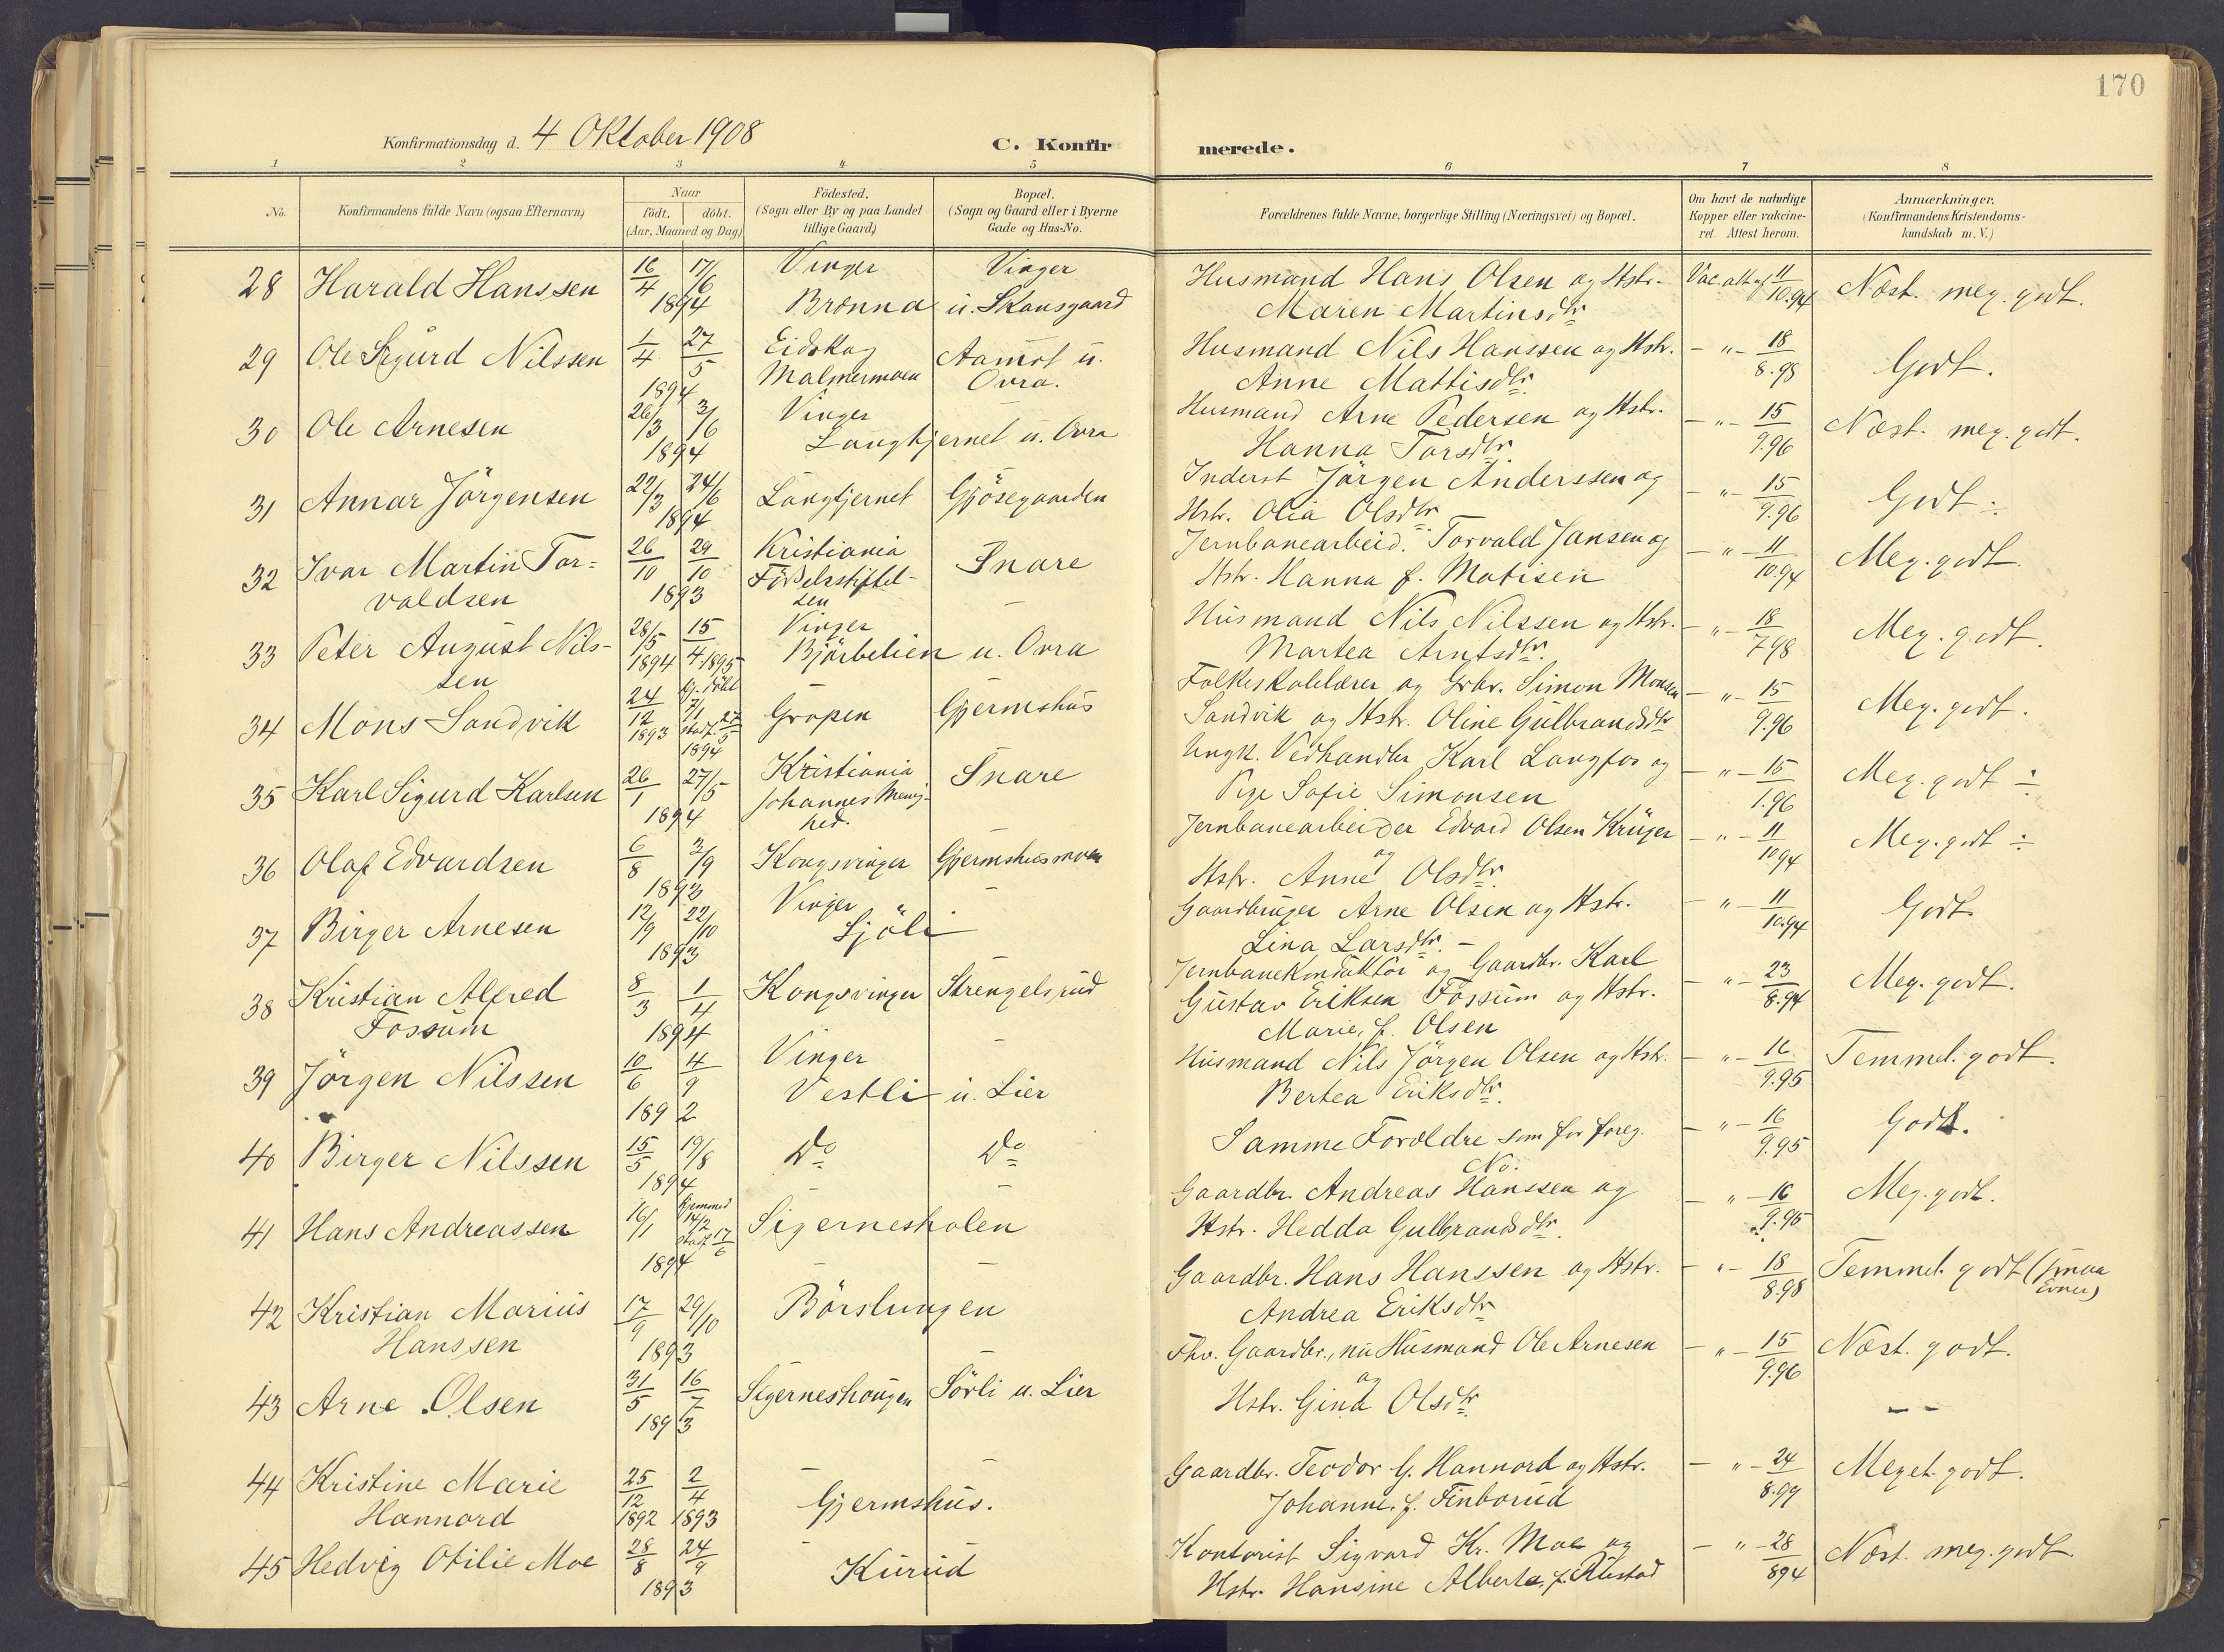 170
Konfirmationsdag d. 4 Oktober 1908
C. Konfirmerede.
1 2 3 4 5 6 7 8
No. Konfirmandens fulde Navn (ogsaa Efternavn)
Naar
födt. döbt.
(Aar, Maaned og Dag)
Födested.
(Sogn eller By og paa Landet
tillige Gaard)
Bopæl.
(Sogn og Gaard eller i Byerne
Gade og Hus-No.
Forældrenes fulde Navne, borgerlige Stilling (Næringsvei) og Bopæl.
Om havt de naturlige
Kopper eller vakcine-
ret. Attest herom.
Anmærkninger.
(Konfirmandens Kristendoms-
kundskab m. V.)
28 Harald Hanssen 16/4 17/6 1894 Vinger Brønna Vinger u. Skansgaard Husmand Hans Olsen og Hstr. Vac. att. af 11/10.94 Næst. meg. godt.
Maren Martinsdtr
29 Ole Sigurd Nilssen 1/4 27/5 1894 Eidskog Malmermoen Aamot u. Ovra. Husmand Nils Hanssen og Hstr. - " - 18/8.98 Godt.
Anne Mattisdtr.
30 Ole Arnesen 26/3 3/6 1894 Vinger Langtjernet u. Ovra Husmand Arne Pedersen og Hstr. - " - 15/9.96 Næst. meg. godt.
Hanna Torsdtr.
31 Annar Jörgensen 22/3 24/6 1894 Langtjernet Gjösegaarden Inderst Jörgen Anderssen og - " - 15/9.96 Godt ÷
Hstr. Olia Olsdtr.
32 Ivar Martin Tor= 26/10 29/10 1893 Kristiania Födselsstiftel- Snare Jernbanearbeid. Torvald Jansen og - " - 11/10.94 Meg. godt.
valdsen sen Hstr. Hanna f. Matisen
33 Peter August Nils- 28/5 1894 15/4 1895 Vinger Björbelien u. Ovra Husmand Nils Nilssen og Hstr. - " - 18/7 98 Meg. godt.
sen Martea Arntsdtr.
34 Mons Sandvik 24/12 1893 hj. döbt 7/1 stadf. 27/5 1894 Gropen Gjermshus Folkeskolelærer og Grbr. Simon Monsen - " - 15/9.96 Meg. godt.
Sandvik og Hstr. Oline Gulbrandsdtr
35 Karl Sigurd Karlsen 26/1 27/5 1894 Kristiania Johannes Menig- Snare Ungk. Vedhandler Karl Langfos og - " - 15/1.96 Meg. godt ÷
hed. Pige Sofie Simonsen
36 Olaf Edvardsen 6/8 3/9 1893 Kongsvinger Gjermshusmoen Jernbanearbeider Edvard Olsen Krüger - " - 11/10 94 Meg. godt ÷
og
Hstr. Anne Olsdtr.
37 Birger Arnesen 12/9 22/10 1893 Vinger Sjöli Gaardbruger Arne Olsen og Hstr. - " - 11/10.94 Godt
Lina Larsdtr. -
38 Kristian Alfred 8/3 1/4 1894 Kongsvinger Strengelsrud Jernbanekonduktör og Gaardbr. Karl - " - 23/8.94 Meg. godt.
Fossum Gustav Eriksen Fossum og Hstr.
Marie, f. Olsen
39 Jörgen Nilssen 10/6 4/9 1892 Vinger Vestli u. Lier Husmand Nils Jörgen Olsen og Hstr. - " - 16/9.95 Temmel. godt.
Bertea Eriksdtr.
40 Birger Nilssen 15/5 19/8 1894 Do Do Samme Forældre som for foreg. - " - 16/9.95 Godt.
No.
41 Hans Andreassen 16/1 Hjemmed 14/2 stadf. 17/6 1894 Sigernesholen Gaardbr. Andreas Hanssen og - " - 16/9.95 Meg. godt.
Hstr. Hedda Gulbrandsdtr.
42 Kristian Marius 17/9 29/10 1893 Börslungen Gaardbr. Hans Hanssen og Hstr. - " - 18/8.98 Temmel. godt (smaa
Hanssen Andrea Eriksdtr Evner)
43 Arne Olsen 31/5 16/7 1893 Sigerneshaugen Sörli u. Lier Fhv. Gaardbr., nu Husmand Ole Arnesen - " - 15/9.96 Næst. godt.
og
Hstr. Gina Olsdtr.
44 Kristine Marie 25/12 1892 2/4 1893 Gjermshus. Gaardbr. Teodor G. Hannord og Hstr. - " - 24/8.99 Meget godt.
Hannord Johanne, f. Finborud
45 Hedvig Otilie Moe 28/8 24/9 1893 Kurud Kontorist Sigvard Kr. Moe og - " - 28/894 Næst. meg. godt.
Hstr. Hansine Alberta, f.